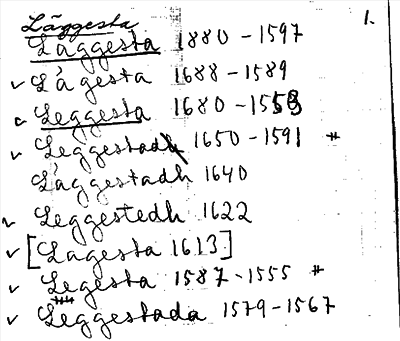 Läggesta
1.
Läggesta 1880-1597
Lágesta 1688-1589
Leggesta 1680-1558
Leggestadh 1650-1591 #
Läggestadh 1640
Leggestedh 1622
[Lagesta 1613]
Legesta 1587-1555 #
Leggestada 1579-1567